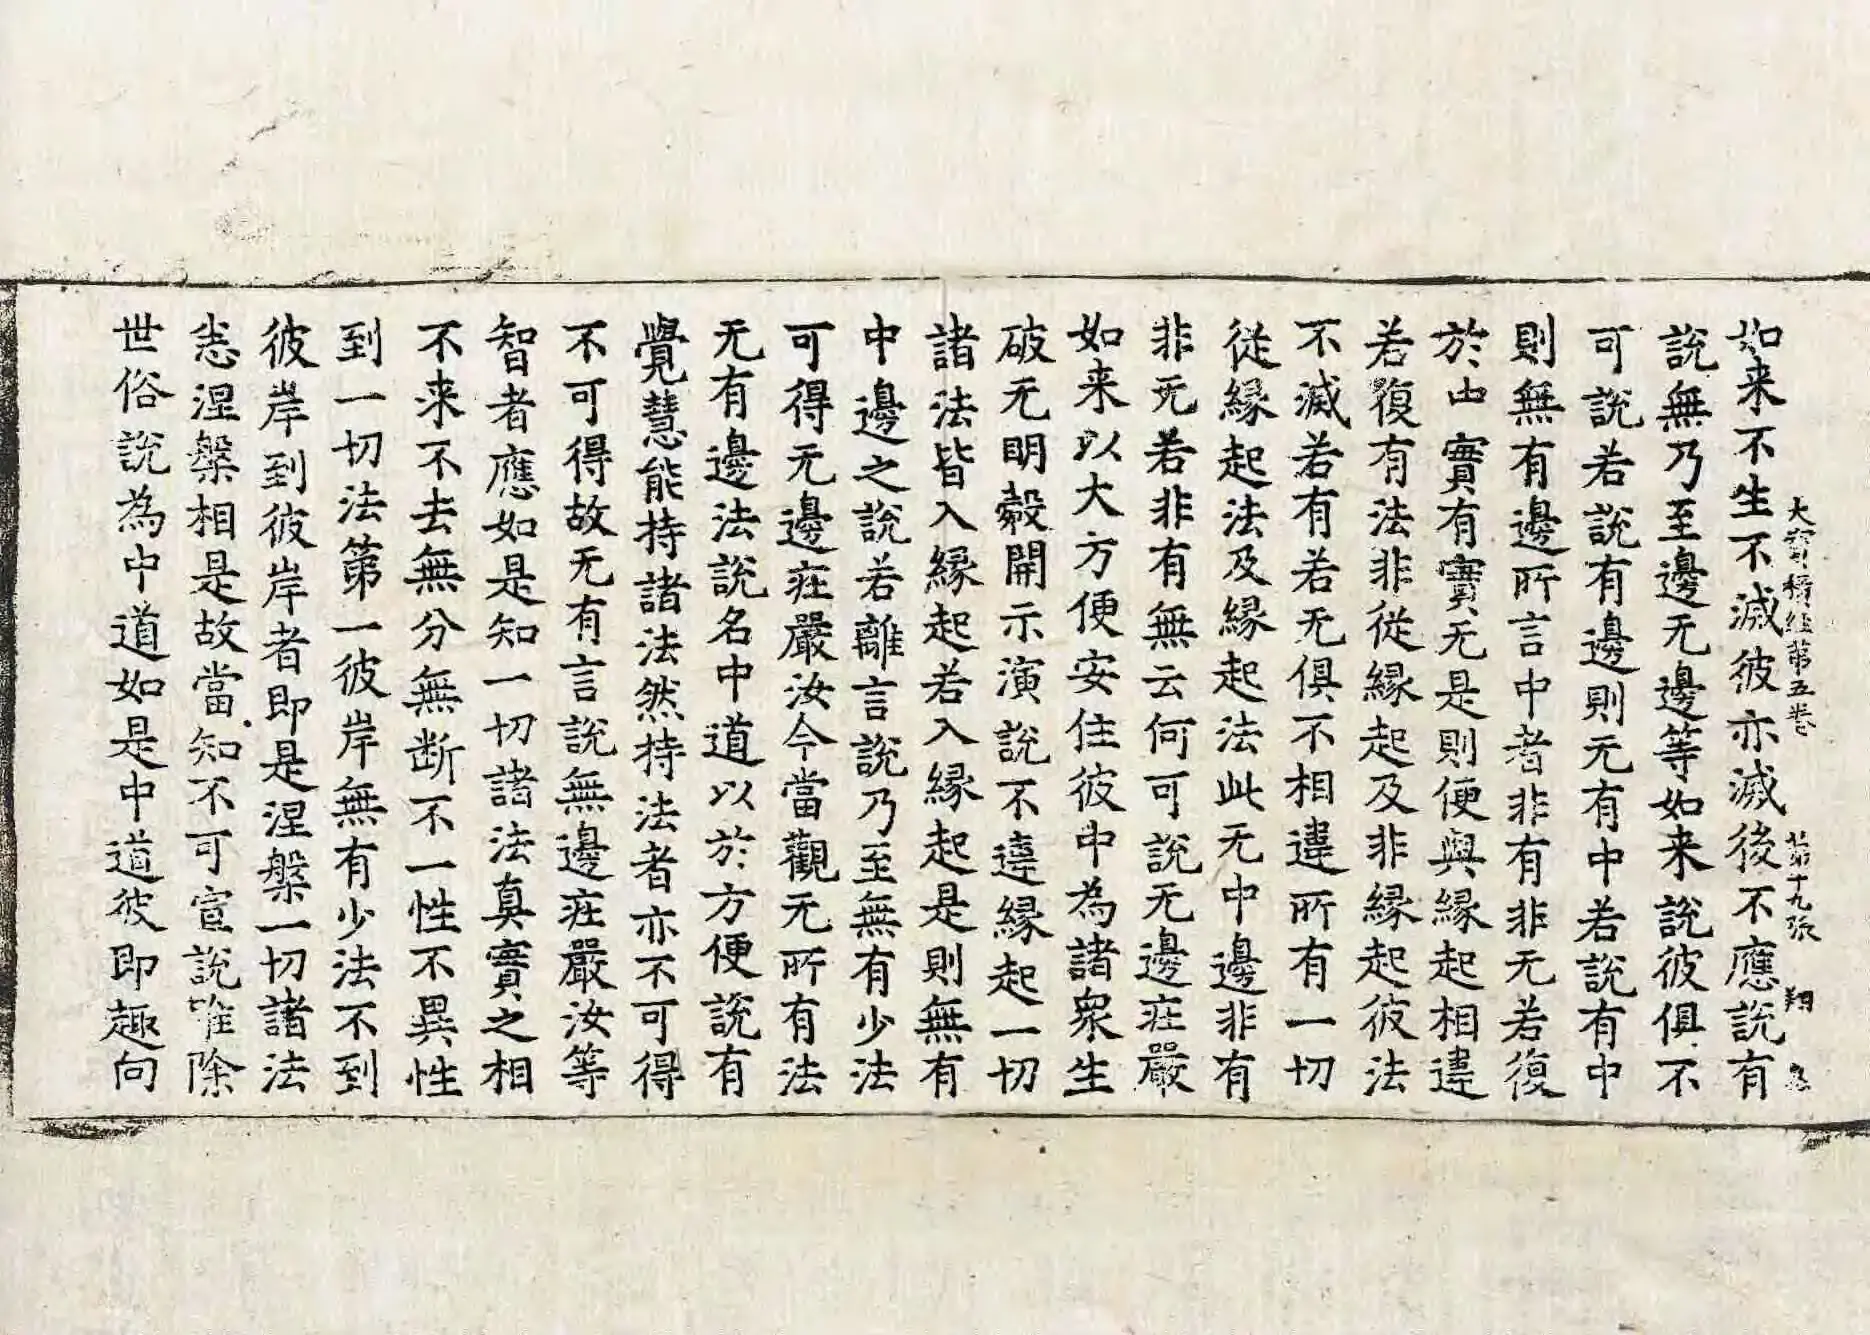 大寶積經第五卷 第十九張 翔
如来不生不滅彼亦滅後不應說有
說無乃至邊无邊等如来說彼俱不
可說若說有邊則无有中若說有中
則無有邊所言中者非有非无若復
於中實有實无是則便與縁起相違
若復有法非從縁起及非縁起彼法
不滅若有若无俱不相違所有一切
從縁起法及縁起法此无中邊非有
非无若非有無云何可說无邊庄嚴
如来以大方便安住彼中為諸眾生
破无明㲉開示演說不違縁起一切
諸法皆入縁起若入縁起是則無有
中邊之說若離言說乃至無有少法
可得无邊庄嚴汝今當觀无所有法
无有邊法說名中道以於方便說有
覺慧能持諸法然持法者亦不可得
不可得故无有言說無邊庄嚴汝等
智者應如是知一切諸法真實之相
不来不去無分無断不一性不異性
到一切法第一彼岸無有少法不到
彼岸到彼岸者即是涅槃一切諸法
悉涅槃相是故當知不可宣說唯除
世俗說為中道如是中道彼即趣向